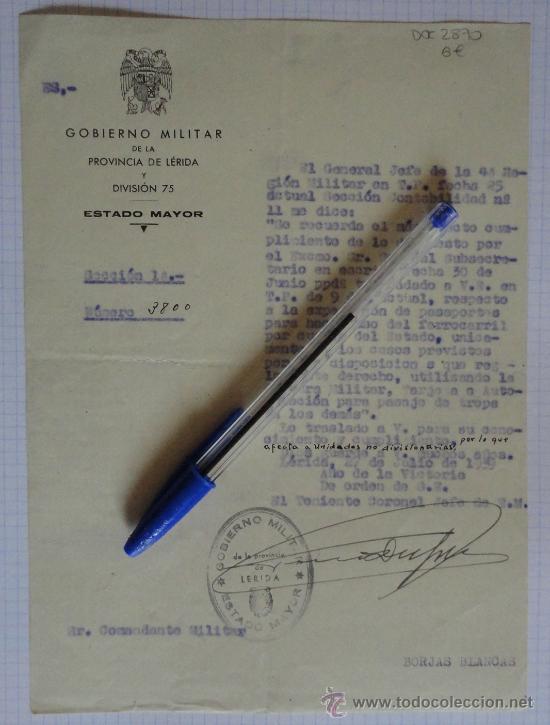 DOC 2870
6€
ES,-
GOBIERNO MILITAR
DE LA
PROVINCIA DE LÉRIDA
Y
DIVISIÓN 75
ESTADO MAYOR
Sección 1ª.-
Número 3800
El General Jefe de la 4ª Re-
gión Militar en T.P. fecha 25
actual Sección Contabilidad nº
11 me dice:
"Se recuerda el más cum-
plimiento de lo por
el Excmo. Sr. Subsecre-
tario en fecha 30 de
Junio ppdº a V.E. en
T.P. de 9 actual, respecto
a la de pasaportes
para del ferrocarril
por del Estado, unica-
los casos previstos
disposición s que
derecho, utilizando la
Militar, Tarje a o Auto-
para pasaje de tropa
los demás".
Lo traslado a V. para su cono-
cimiento por lo que
afecta a Unidades no divisionarias.
años.
Lérida, 27 de Julio de 1939
Año de la Victoria
De orden de S.E.
El Teniente Coronel Jefe de E.M.
GOBIERNO MILITAR
de la provincia
de
LERIDA
ESTADO MAYOR
Sr. Comandante Militar
BORJAS BLANCAS
www.todocoleccion.net